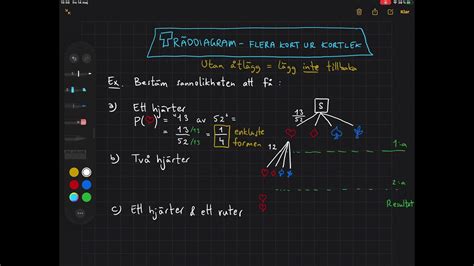 TRÄDDIAGRAM - FLERA KORT UR KORTLEK
Utan återlägg = lägg inte tillbaka
Ex. Bestäm sannolikheten att få :
a) Ett hjärter
P(♥) = "13 av 52" =
= 13/52 /13 /13 = 1/4 enklaste formen
13/52
S
12
1:a
b) Två hjärter
2:a
Resultat
c) Ett hjärter & ett ruter